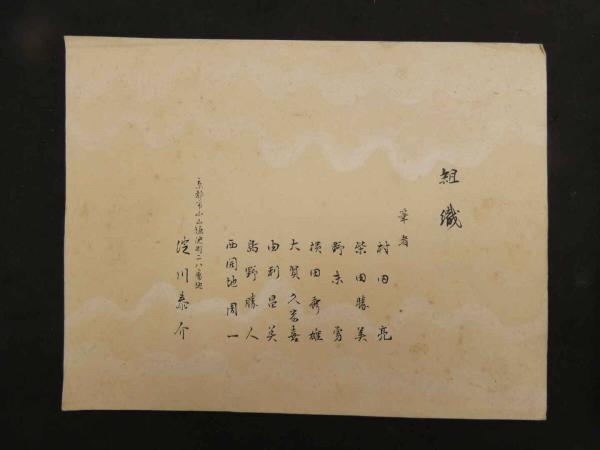 組織
筆者
村内亮
柴田勝美
野末勇
横田秀雄
大賀久喜
由利昌英
島野勝人
西園地周一
京都市小山堀池町二八番地
淀川泰介